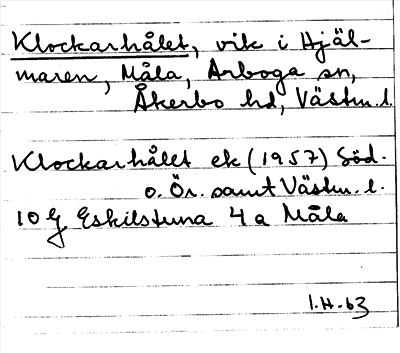 Klockarhålet, vik i Hjäl-
maren, Måla, Arboga sn,
Åkerbo hd, Västm.l.
Klockarhålet ek (1957) Söd.
o. Ör. samt Västm. l.
10 g Eskilstuna 4 a Måla
I.H.63